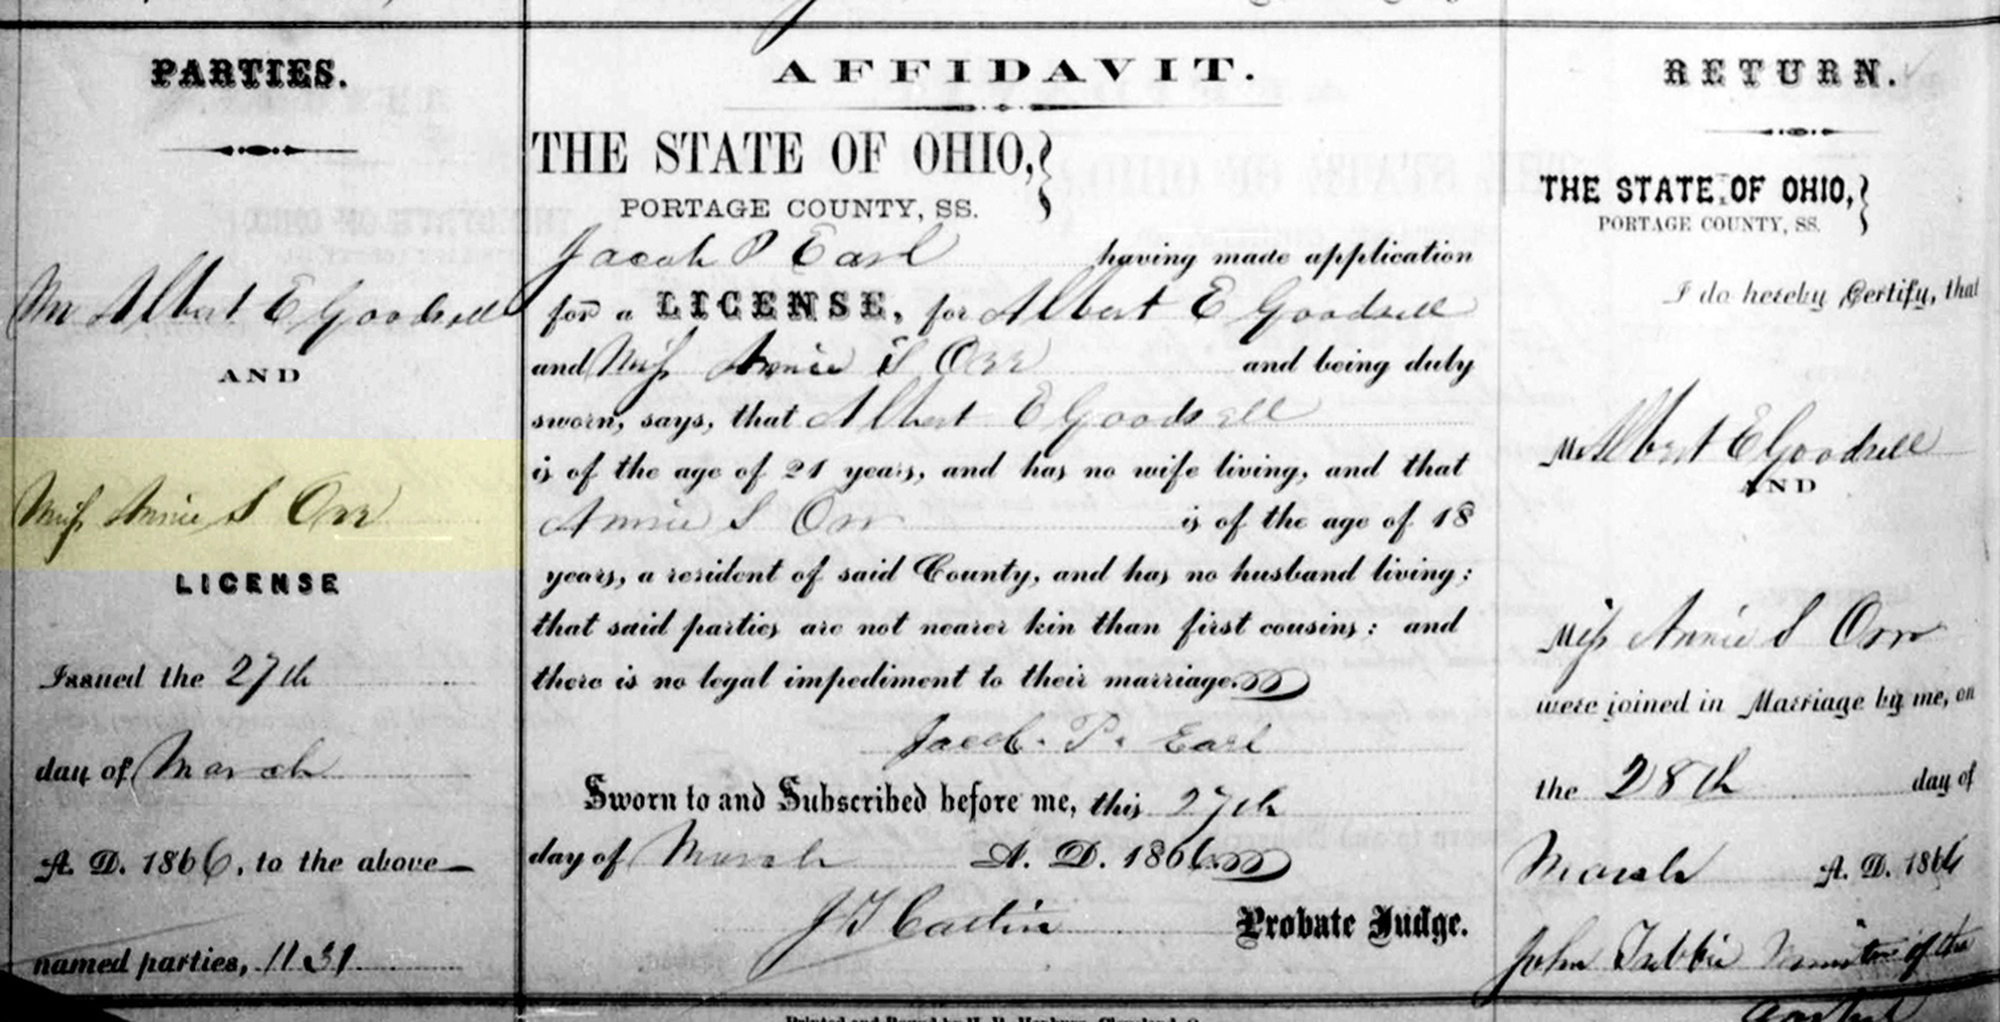 PARTIES.
Mr Albert E Goodsell
AND
Miss Annie S Orr
LICENSE
Issued the 27th
day of March
A. D. 1866, to the above
named parties, 1131
AFFIDAVIT.
THE STATE OF OHIO,
PORTAGE COUNTY, SS.
Jacob P Earl having made application
for a LICENSE, for Albert E Goodsell
and Miss Annie S Orr and being duly
sworn, says, that Albert E Goodsell
is of the age of 21 years, and has no wife living, and that
Annie S Orr is of the age of 18
years, a resident of said County, and has no husband living;
that said parties are not nearer kin than first cousins: and
there is no legal impediment to their marriage.
Jacob. P. Earl
Sworn to and Subscribed before me, this 27th
day of March A. D. 1866
Probate Judge.
RETURN.
THE STATE OF OHIO,
PORTAGE COUNTY, SS.
I do hereby Certify, that
Mr Albert E Goodsell
AND
Miss Annie S Orr
were joined in Marriage by me, on
the 28th day of
March A. D. 1866
John Minister of the
Gospel